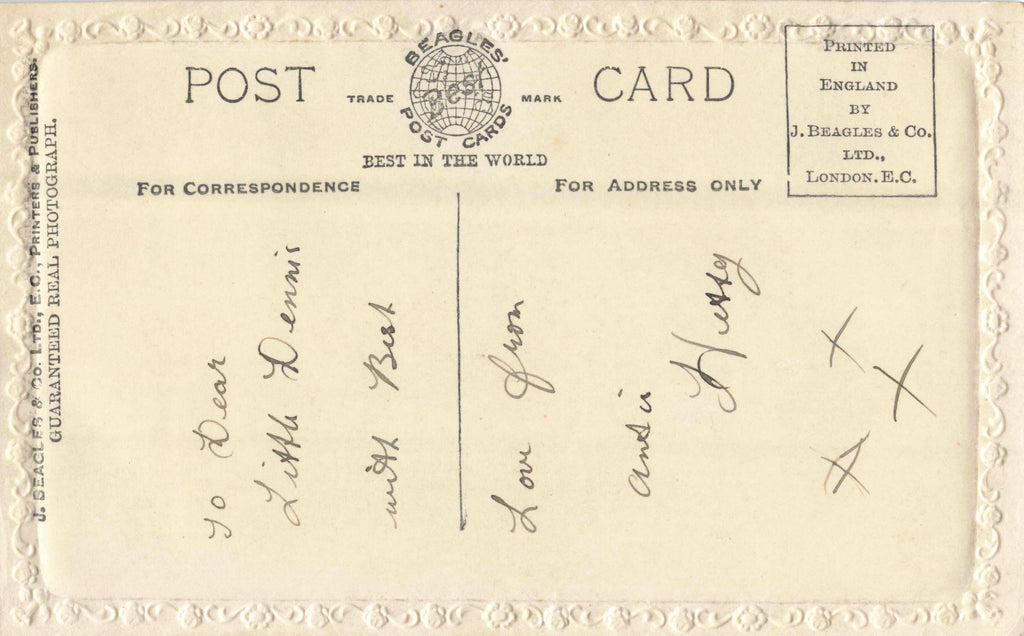 POST CARD
BEAGLES'
Best
POST CARDS
TRADE MARK
BEST IN THE WORLD
FOR CORRESPONDENCE
FOR ADDRESS ONLY
PRINTED
IN
ENGLAND
BY
J. BEAGLES & CO.
LTD.,
LONDON. E.C.
J. BEAGLES & CO. LTD., E.C., PRINTERS & PUBLISHERS.
GUARANTEED REAL PHOTOGRAPH.
To Dear
Little Dennis
with Best
Love from
Antie
Hetty
X X X